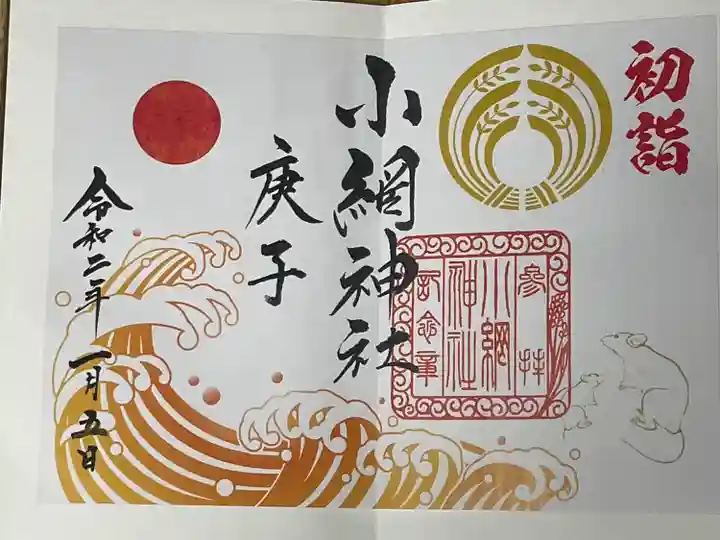 初詣
小網神社
庚子
令和二年一月五日
参拝
小綱
神社
記念章